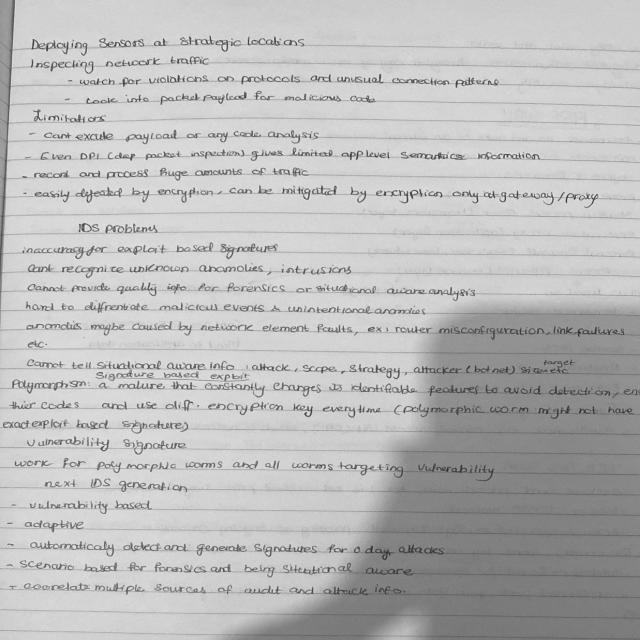 Deploying Sensors at Strategic locations
Inspecting network traffic
- watch for violations on protocols and unusual connection patterns
- Look into packet payload for malicious code
Limitations
- cant excute payload or any code analysis
- Even DPI (deep packet inspection) gives limited app level semantics information
- record and process huge amounts of traffic
- easily defeated by encryption, can be mitigated by encryption only at gateway/proxy
IDS problems
inaccuracy for exploit based signatures
cant recognize unknown anomolies, intrusions
Cannot provide quality info for forensics or situational aware analysis
hard to diffrentiate malicious events & unintentional anomalies
anomalies maybe caused by network element faults, ex: router misconfiguration, link failures
etc.
Cannot tell situational aware info : attack, scope, strategy, attacker (botnet) target
signature based exploit
Polymorphism: a malware that constantly changes its identifiable features to avoid detection, en
thier codes and use diff. encryption key everytime (polymorphic worm might not have
exact exploit based signature)
Vulnerability signature
work for polymorphic worms and all worms targeting vulnerability
next IDS generation
- vulnerability based
- adaptive
- automaticaly detect and generate signatures for 0 day attacks
- scenario based for forensics and being situational aware
- coorelate multiple sources of audit and attack info.